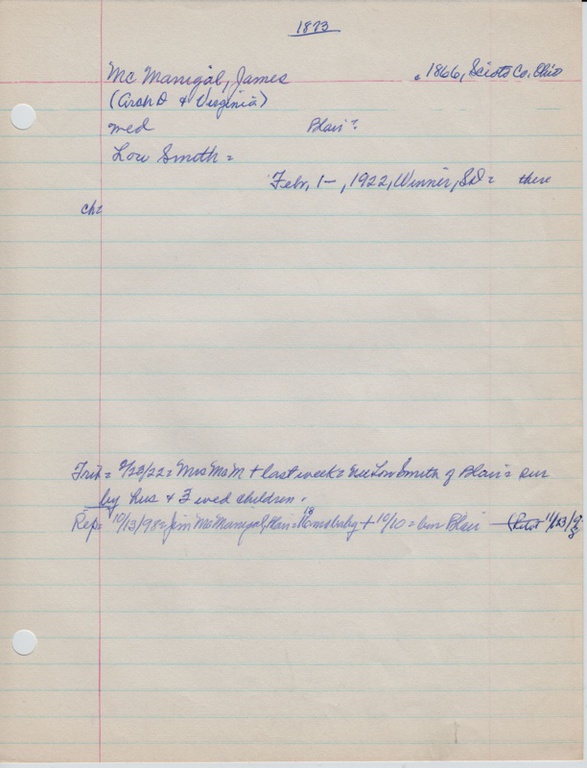 1873
Mc Manigal, James c 1866, Scioto Co. Ohio
(Arch D & Virginia)
med Blair?
Lou Smith =
Febr, 1—, 1922, Winner, SD = there
ch=
Trib = 2/23/22 = Mrs McM + last week = nee Lou Smith of Blair = sur
by hus & 3 wed children.
Rep = 10/13/98 = Jim McManigal, + 10/10 = bur Blair